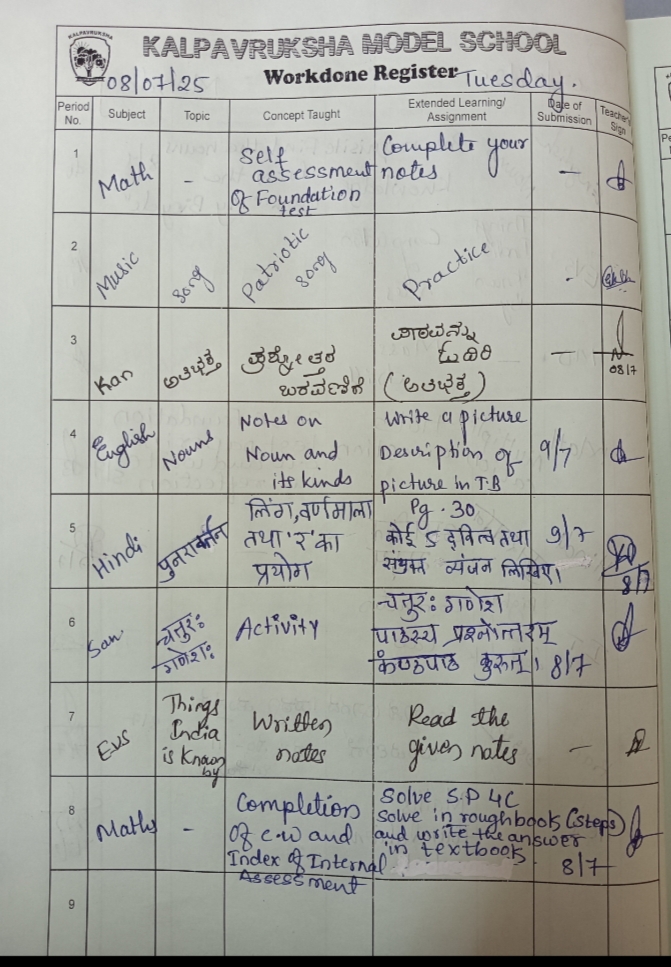 KALPAVRUKSHA
KALPAVRUKSHA MODEL SCHOOL
08/07/25 Workdone Register Tuesday.
Period No. Subject Topic Concept Taught Extended Learning/ Assignment Date of Submission Teacher's Sign
1 Math - Self assessment of Foundation test Complete your notes -
2 Music song Patriotic song Practice -
3 Kan ಪ್ರಶ್ನೋತ್ತರ ಬರವಣಿಗೆ ಪಾಠವನ್ನು ಓದಿರಿ - 08/7
4 English Nouns Notes on Noun and its kinds Write a picture Description of picture in T.B 9/7
5 Hindi पुनरावर्तन लिंग, वर्णमाला तथा 'र' का प्रयोग Pg. 30 कोई 5 द्वित्व तथा संयुक्त व्यंजन लिखिए। 9/7 8/7
6 San चतुरः गणेशः Activity चतुरः गणेश पाठस्य प्रश्नोत्तरम् कंण्ठपाठ कुरुत। 8/7
7 EVS Things India is Known by Written notes Read the given notes -
8 Maths - Completion of c.w and Index of Internal Assessment Solve S.P 4C Solve in roughbook (steps) and write the answer in textbook. 8/7
9